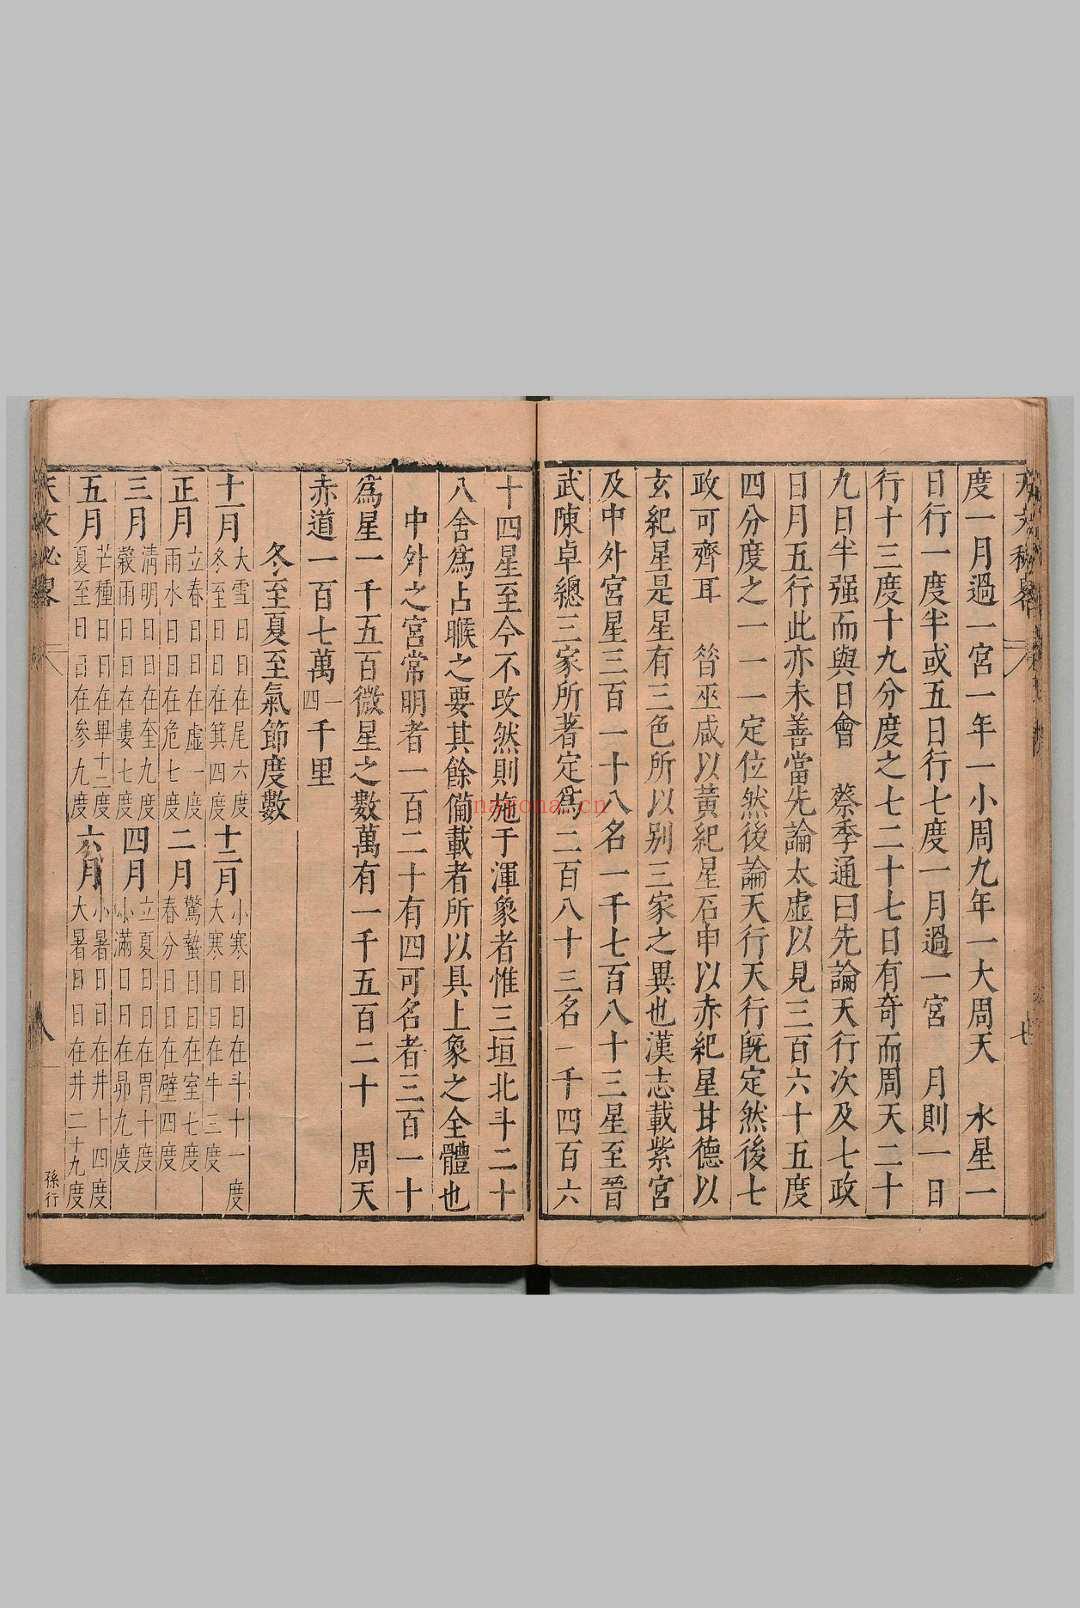 天文秘畧
七
度一月過一宮一年一小周九年一大周天　水星一
日行一度半或五日行七度一月過一宮　月則一日
行十三度十九分度之七二十七日有奇而周天二十
九日半强而與日會　蔡季通曰先論天行次及七政
日月五行此亦未善當先論太虛以見三百六十五度
四分度之一一一定位然後論天行天行旣定然後七
政可齊耳　昝巫咸以黃紀星石申以赤紀星甘德以
玄紀星是星有三色所以别三家之異也漢志載紫宮
及中外宮星三百一十八名一千七百八十三星至晉
武陳卓總三家所著定爲二百八十三名一千四百六
十四星至今不改然則施于渾象者惟三垣北斗二十
八舍爲占睺之要其餘備載者所以具上象之全體也
中外之宮常明者一百二十有四可名者三百一十
爲星一千五百微星之數萬有一千五百二十　周天
赤道一百七萬一四千里
冬至夏至氣節度數
十一月 大雪日日在尾六度 冬至日日在箕四度 十二月 小寒日日在斗十一度 大寒日日在牛三度
正月 立春日日在虛一度 雨水日日在危七度 二月 驚蟄日日在室七度 春分日日在壁四度
三月 清明日日在奎九度 穀雨日日在婁七度 四月 立夏日日在胃十度 小滿日日在昴九度
五月 芒種日日在畢十二度 夏至日日在參九度 六月 小暑日日在井十四度 大暑日日在井二十九度
天文秘畧
八
孫行
nayona.cn